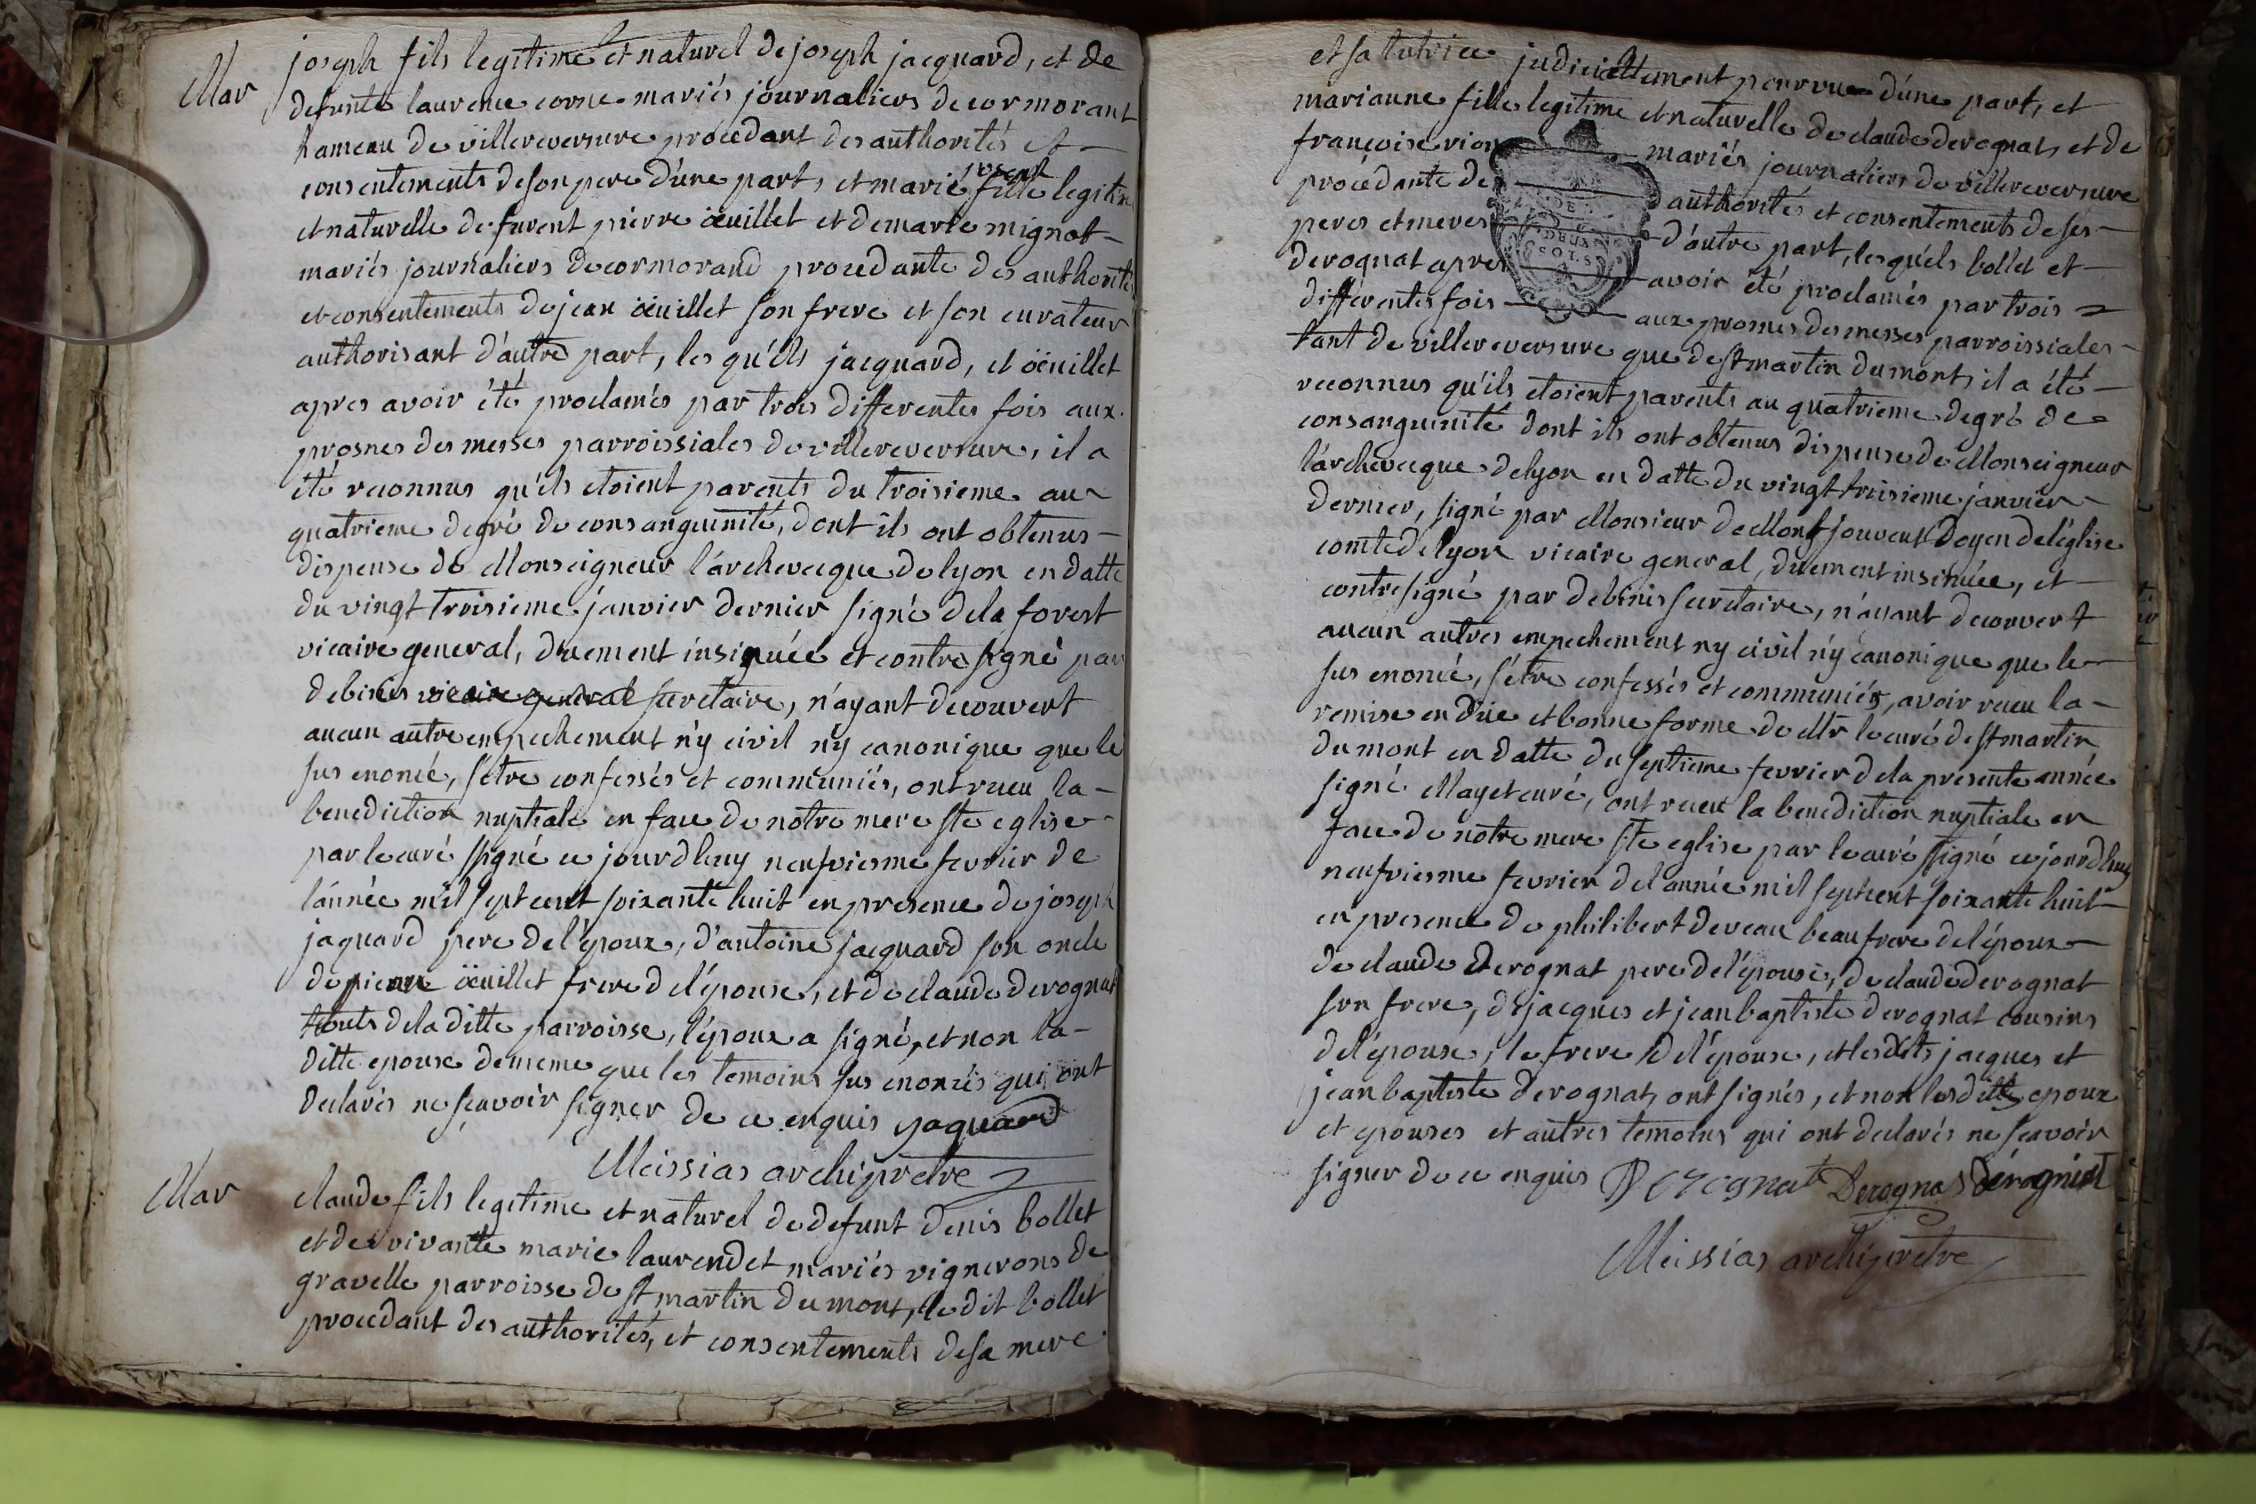 Mar
joseph fils legitime et naturel de joseph jacquard, et de
defunte laurence corne mariés journaliers de cormorant
hameau de villereversure procedant des authorités et
consentements de son pere d'une part, et marie joseph fille legitime
et naturelle de furent pierre oëuillet et de marie mignot
mariés journaliers de cormorand procedante des authorités
et consentements de jean oëuillet son frere et son curateur
authorisant d'autre part, les qu'els jacquard, et oëuillet
apres avoir été proclamés par trois differentes fois aux
prosnes des messes parroissiales de villereversure, il a
été reconnus qu'ils etoient parents du troisieme au
quatrieme degré de consanguinité, dont ils ont obtenus
dispense de Monseigneur l'archevecque de lyon en datte
du vingt troisieme janvier dernier signé de la forest
vicaire general, duement insinuée et contre signé par
debinis vicaire general secretaire, n'ayant decouvert
aucun autre empechement n'y civil n'y canonique que le
sus enoncé, s'etre confessés et communiés, ont receu la
benediction nuptiale en face de notre mere ste eglise
par le curé ssigné ce jourd'huy neufviesme fevrier de
l'année mil sept cent soixante huit en presence de joseph
jaquard pere de l'epoux, d'antoine jacquard son oncle
de pierre oëuillet frere de l'épouse, et de claude derognat
touts de la ditte parroisse, l'époux a signé, et non la
ditte epouse de meme que les temoins sus enoncés qui ont
declarés ne sçavoir signer de ce enquis yaquard
Meissias archipretre
Mar
claude fils legitime et naturel de defunt denis bollet
et de vivante marie laurendet mariés vignerons de
gravelle parroisse de st martin du mont, le dit bollet
procedant des authorités, et consentements de sa mere
et sa tutrice judiciellement pourvue d'une part, et
marianne fille legitime et naturelle de claude derognat, et de
françoise mariés journaliers de villereversure
procédante de authorités et consentements de ses
peres et meres d'autre part, lesqu'els bollet et
derognat apres avoir été proclamés par trois
differentes fois aux prosnes des messes parroissiales
tant de villereversure que de st martin du mont, il a été
reconnus qu'ils etoient parents au quatrieme degré de
consanguinité dont ils ont obtenus dispense de Monseigneur
l'archevecque de lyon en datte du vingt troisieme janvier
dernier, signé par Monsieur de Montjouvent doyen de l'église
comte de lyon vicaire general, duement insinuée, et
contresigné par debinis secretaire, n'ayant decouvert
aucun autres empechement n'y civil n'y canonique que le
sus enoncé, s'étre confessés et communiés, avoir receu la
remise en due et bonne forme de Mr le curé de st martin
du mont en datte du septieme fevrier de la presente année
signé Mayet curé, ont receu la benediction nuptiale en
face de notre mere ste eglise par le curé ssigné ce jourd'huy
neufviesme fevrier de l'année mil sept cent soixante huit
en presence de philibert deveau beau frere de l'époux
de claude derognat pere de l'épouse, de claude derognat
son frere, de jacques et jean baptiste derognat cousins
de l'épouse, le frere de l'épouse, et lesdits jacques et
jean baptiste derognat, ont signés, et non lesditts epoux
et epouses et autres temoins qui ont declarés ne sçavoir
signer de ce enquis Derognat Derognat dérognat
Meissias archipretre
DEUX
SOLS